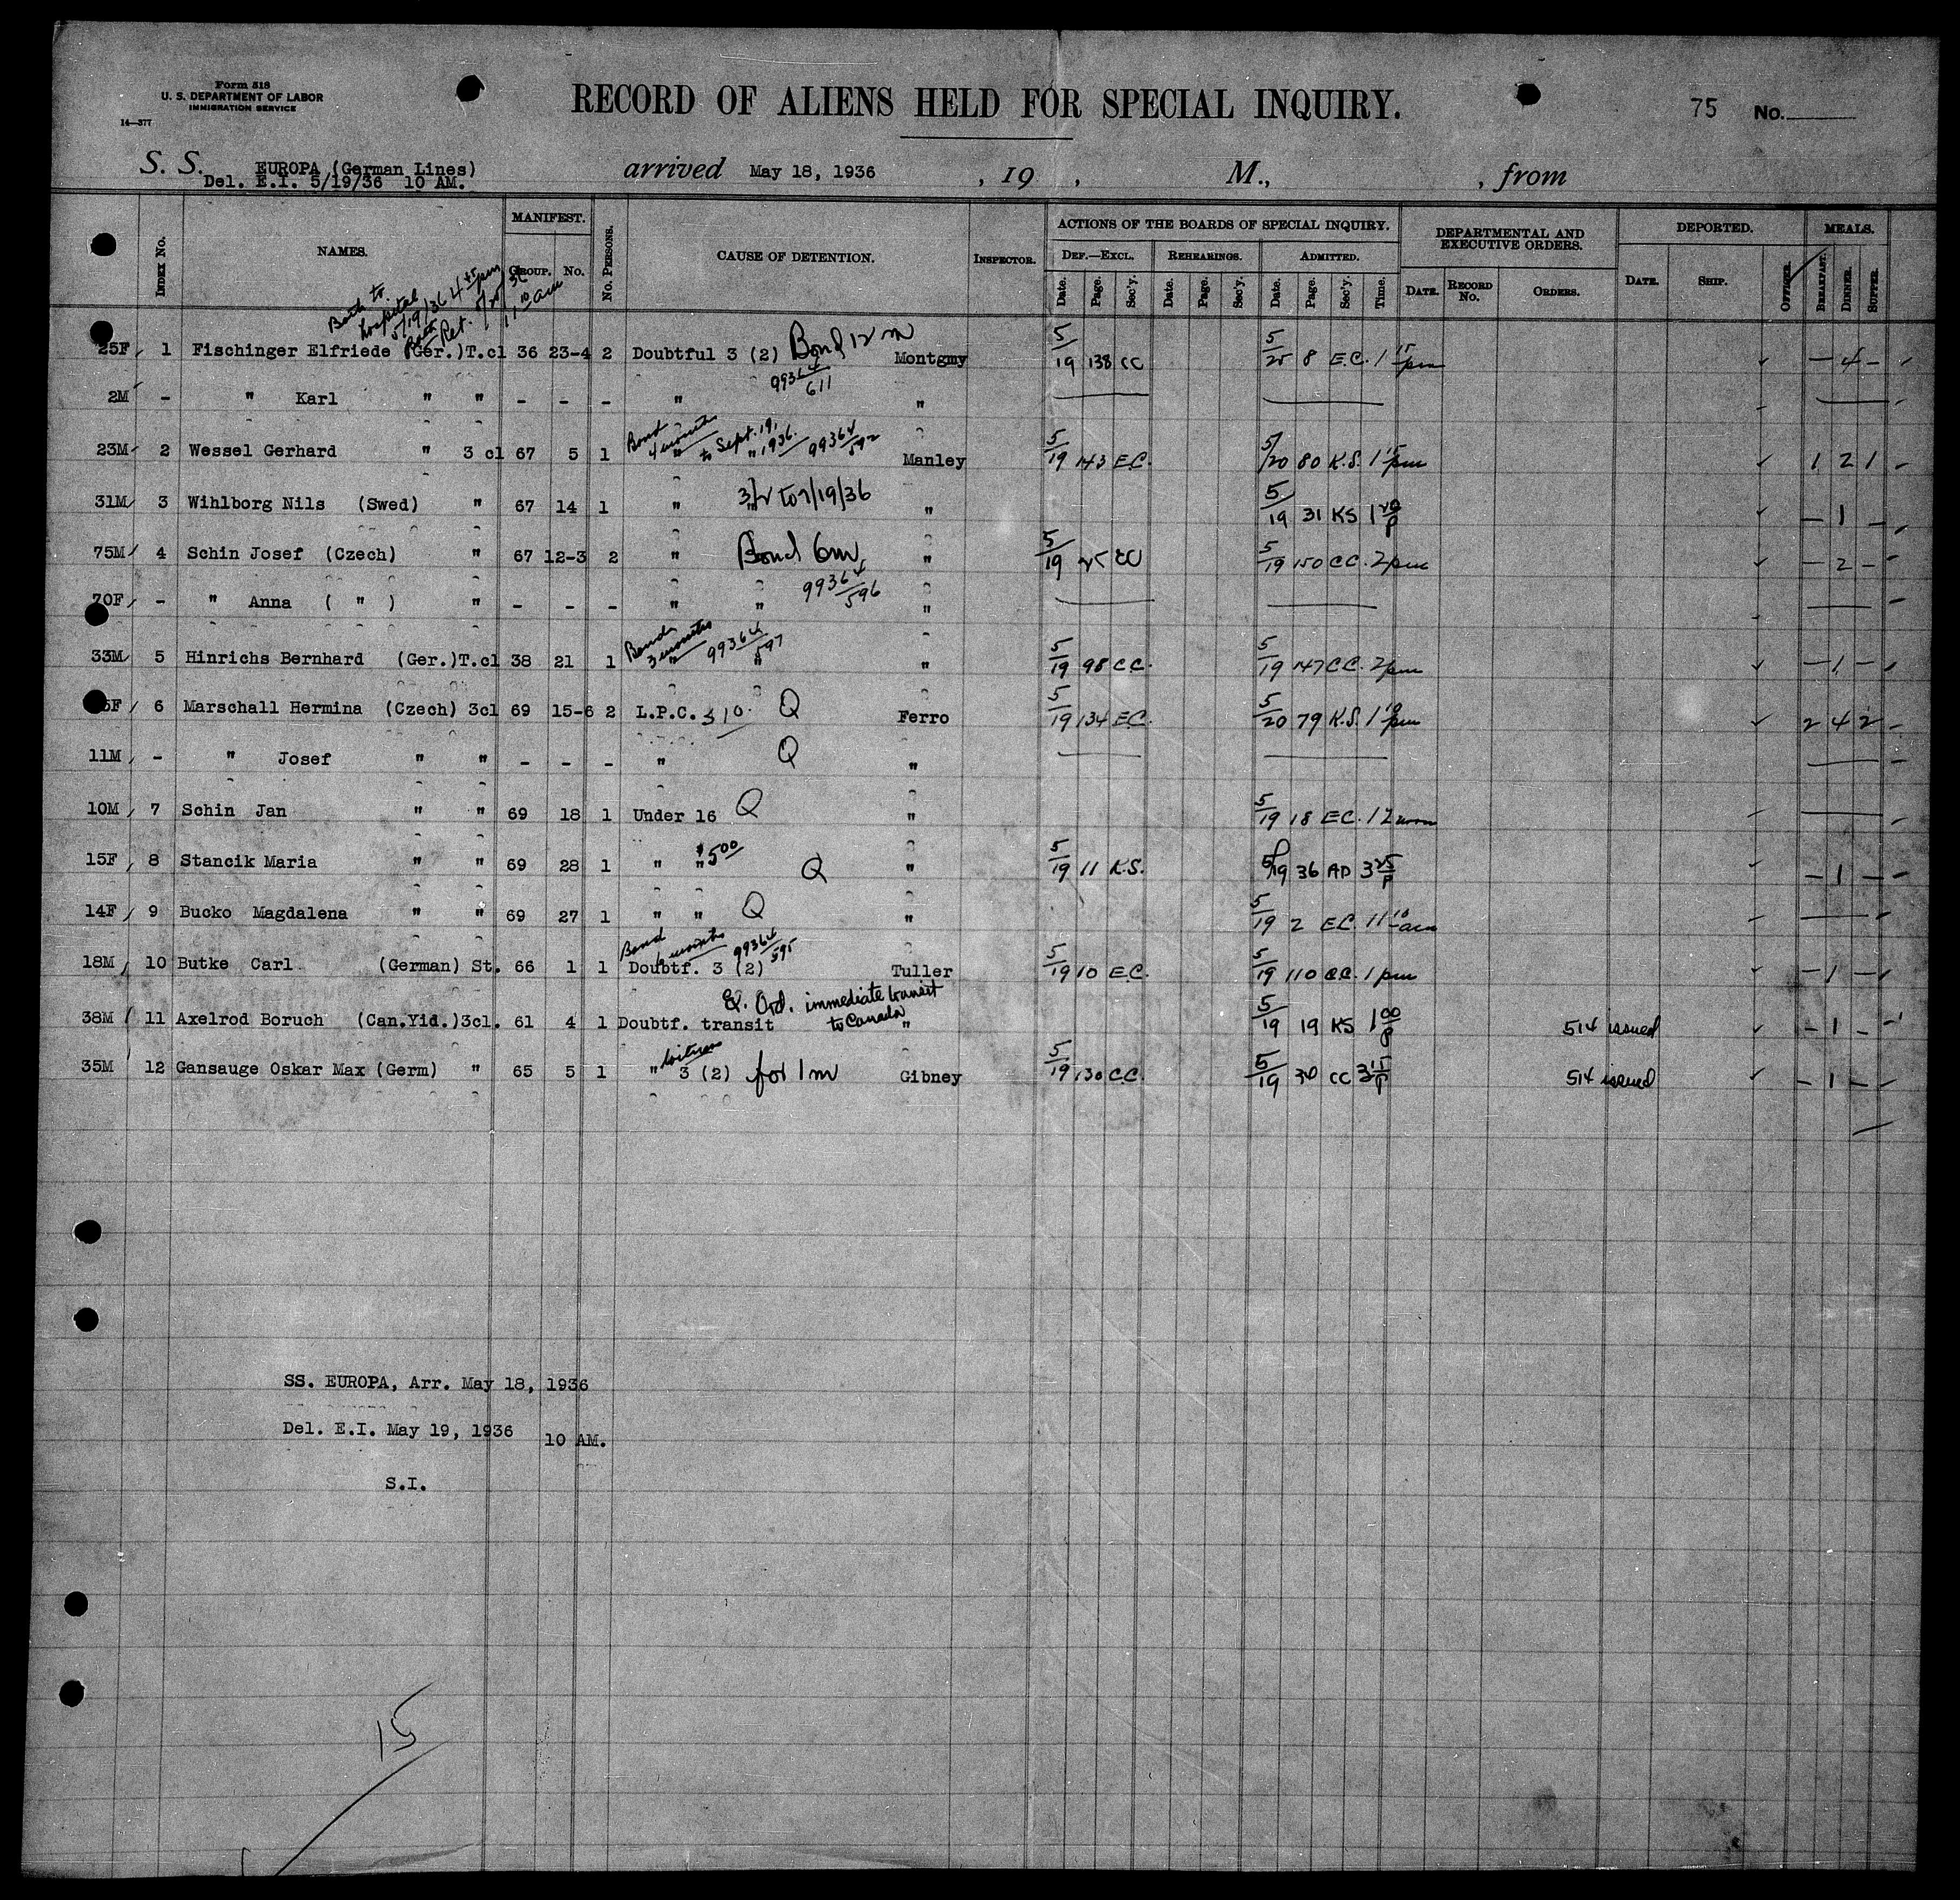 Form 518
U. S. DEPARTMENT OF LABOR
IMMIGRATION SERVICE
14—377
RECORD OF ALIENS HELD FOR SPECIAL INQUIRY.
75 No.
S. S. EUROPA (German Lines) arrived May 18, 1936 , 19 , M., , from
Del. E.I. 5/19/36 10 AM.
INDEX No. NAMES. MANIFEST. GROUP. No. No. PERSONS. CAUSE OF DETENTION. INSPECTOR. ACTIONS OF THE BOARDS OF SPECIAL INQUIRY. DEPARTMENTAL AND EXECUTIVE ORDERS. DEPORTED. MEALS.
DEF.—EXCL. REHEARINGS. ADMITTED.
Date. Page. Sec'y. Date. Page. Sec'y. Date. Page. Sec'y. Time. DATE. RECORD No. ORDERS. DATE. SHIP. OFFICER. BREAKFAST. DINNER. SUPPER.
Both to hospital 5/19/36 4 45 pm
Both Ret. 11 10 am
25F 1 Fischinger Elfriede (Ger.)T.cl 36 23-4 2 Doubtful 3 (2) Bond 12 m Montgmy 5/19 138 CC 5/25 8 E.C. 1 15 pm — 4 —
99364/611
2M - " Karl " " - - - " "
23M 2 Wessel Gerhard " 3 cl 67 5 1 " " Bond 4 months to Sept. 19, 1936. 99364/592 Manley 5/19 143 E.C. 5/20 80 K.S. 1 15 pm 1 2 1
31M 3 Wihlborg Nils (Swed) " 67 14 1 " " 3/2 to 7/19/36 " 5/19 31 KS 1 20 P — 1 —
75M 4 Schin Josef (Czech) " 67 12-3 2 " Bond 6m " 5/19 25 CC 5/19 150 CC. 2 pm — 2 —
99364/596
70F - " Anna ( " ) " - - - " " "
33M 5 Hinrichs Bernhard (Ger.)T.cl 38 21 1 " " Bond 3 months 99364/597 " 5/19 98 C.C. 5/19 147 C.C. 2 pm — 1 —
5F 6 Marschall Hermina (Czech) 3cl 69 15-6 2 L.P.C. 310. Q Ferro 5/19 134 E.C. 5/20 79 K.S. 1 10 pm 2 4 2
11M - " Josef " " - - - " Q "
10M 7 Schin Jan " " 69 18 1 Under 16 Q " 5/19 18 E.C. 12 noon
15F 8 Stancik Maria " " 69 28 1 " " $500 Q " 5/19 11 K.S. 5/19 36 AD 3 25 P — 1 —
14F 9 Bucko Magdalena " " 69 27 1 " " Q " 5/19 2 E.C. 11 10 am
18M 10 Butke Carl (German) St. 66 1 1 Doubtf. 3 (2) Bond months 99364/595 Tuller 5/19 10 E.C. 5/19 110 C.C. 1 pm — 1 —
38M 11 Axelrod Boruch (Can.Yid.)3cl. 61 4 1 Doubtf. transit Ord. immediate transit to Canada " 5/19 19 KS 1 00 P 514 issued — 1 —
35M 12 Gansauge Oskar Max (Germ) " 65 5 1 " 3 (2) for 1m Gibney 5/19 130 C.C. 5/19 30 CC 3 15 P 514 issued — 1 —
SS. EUROPA, Arr. May 18, 1936
Del. E.I. May 19, 1936 10 AM.
S.I.
15